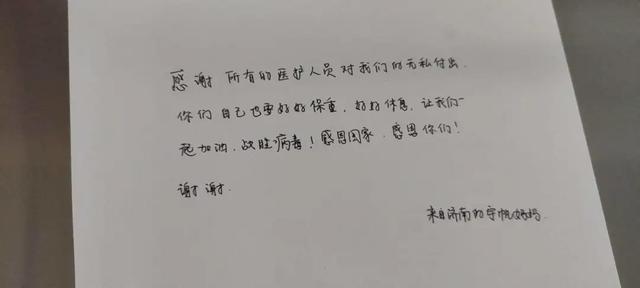 感谢 所有的医护人员对我们的无私付出.
你们自己也要好好保重,好好休息,让我们一
起加油,战胜病毒!感恩国家,感恩你们!
谢谢.
来自济南的宇帆妈妈.